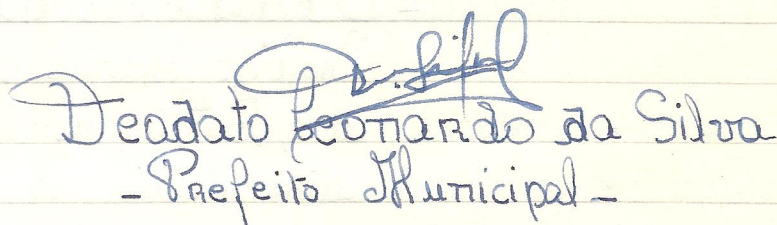 Deadato Leonardo da Silva
- Prefeito Municipal -